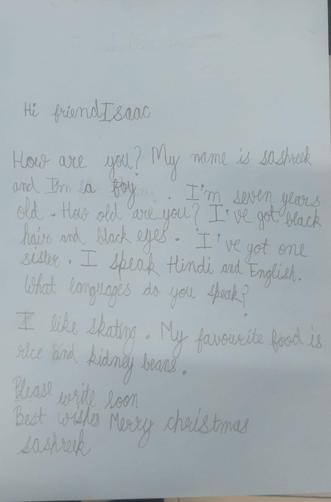 Hi friend Isaac
How are you? My name is sashreek
and I'm a boy . I'm seven years
old . How old are you? I've got black
hair and black eyes . I've got one
sister . I speak Hindi and English.
What languages do you speak?
I like skating . My favourite food is
rice and kidney beans .
Please write soon
Best wishes Merry christmas
sashreek